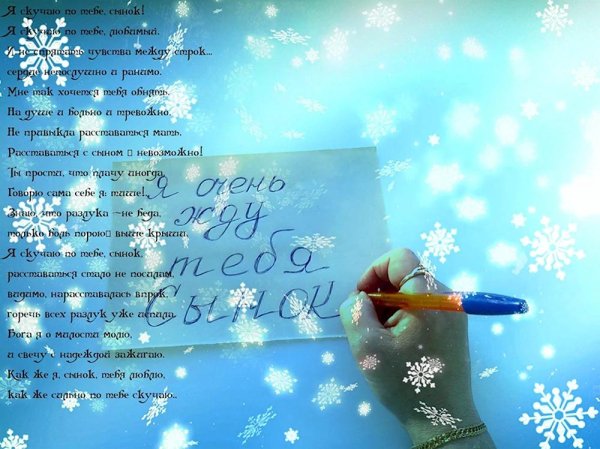 Я скучаю по тебе, сынок!
Я скучаю по тебе, любимый.
И не спрятать чувства между строк...
сердце непослушно и ранимо.
Мне так хочется тебя обнять.
На душе и больно и тревожно.
Не привыкла расставаться мать.
Расставаться с сыном невозможно!
Ты прости, что плачу иногда,
Говорю сама себе я: тише!
Знаю, что разлука –не беда,
только боль порою выше крыши.
Я скучаю по тебе, сынок,
расставаться стало не по силам,
видимо, нарасставалась впрок,
горечь всех разлук уже испила.
Бога я о милости молю,
и свечу с надеждой зажигаю.
Как же я, сынок, тебя люблю,
как же сильно по тебе скучаю..
Я очень
жду
тебя
Сынок